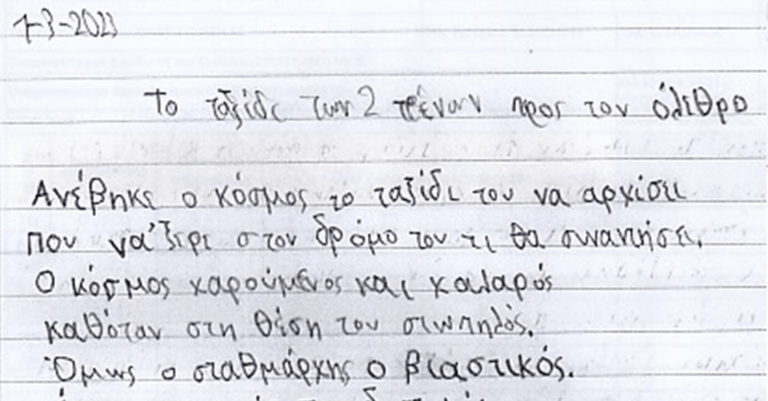 1-3-2023
Το ταξίδι των 2 τρένων προς τον όλιθρο
Ανέβηκε ο κόσμος το ταξίδι του να αρχίσει
που να 'ξερε στον δρόμο του τι θα συναντήσει.
Ο κόσμος χαρούμενος και χαλαρός
καθόταν στη θέση του σιωπηλός.
Όμως ο σταθμάρχης ο βιαστικός.